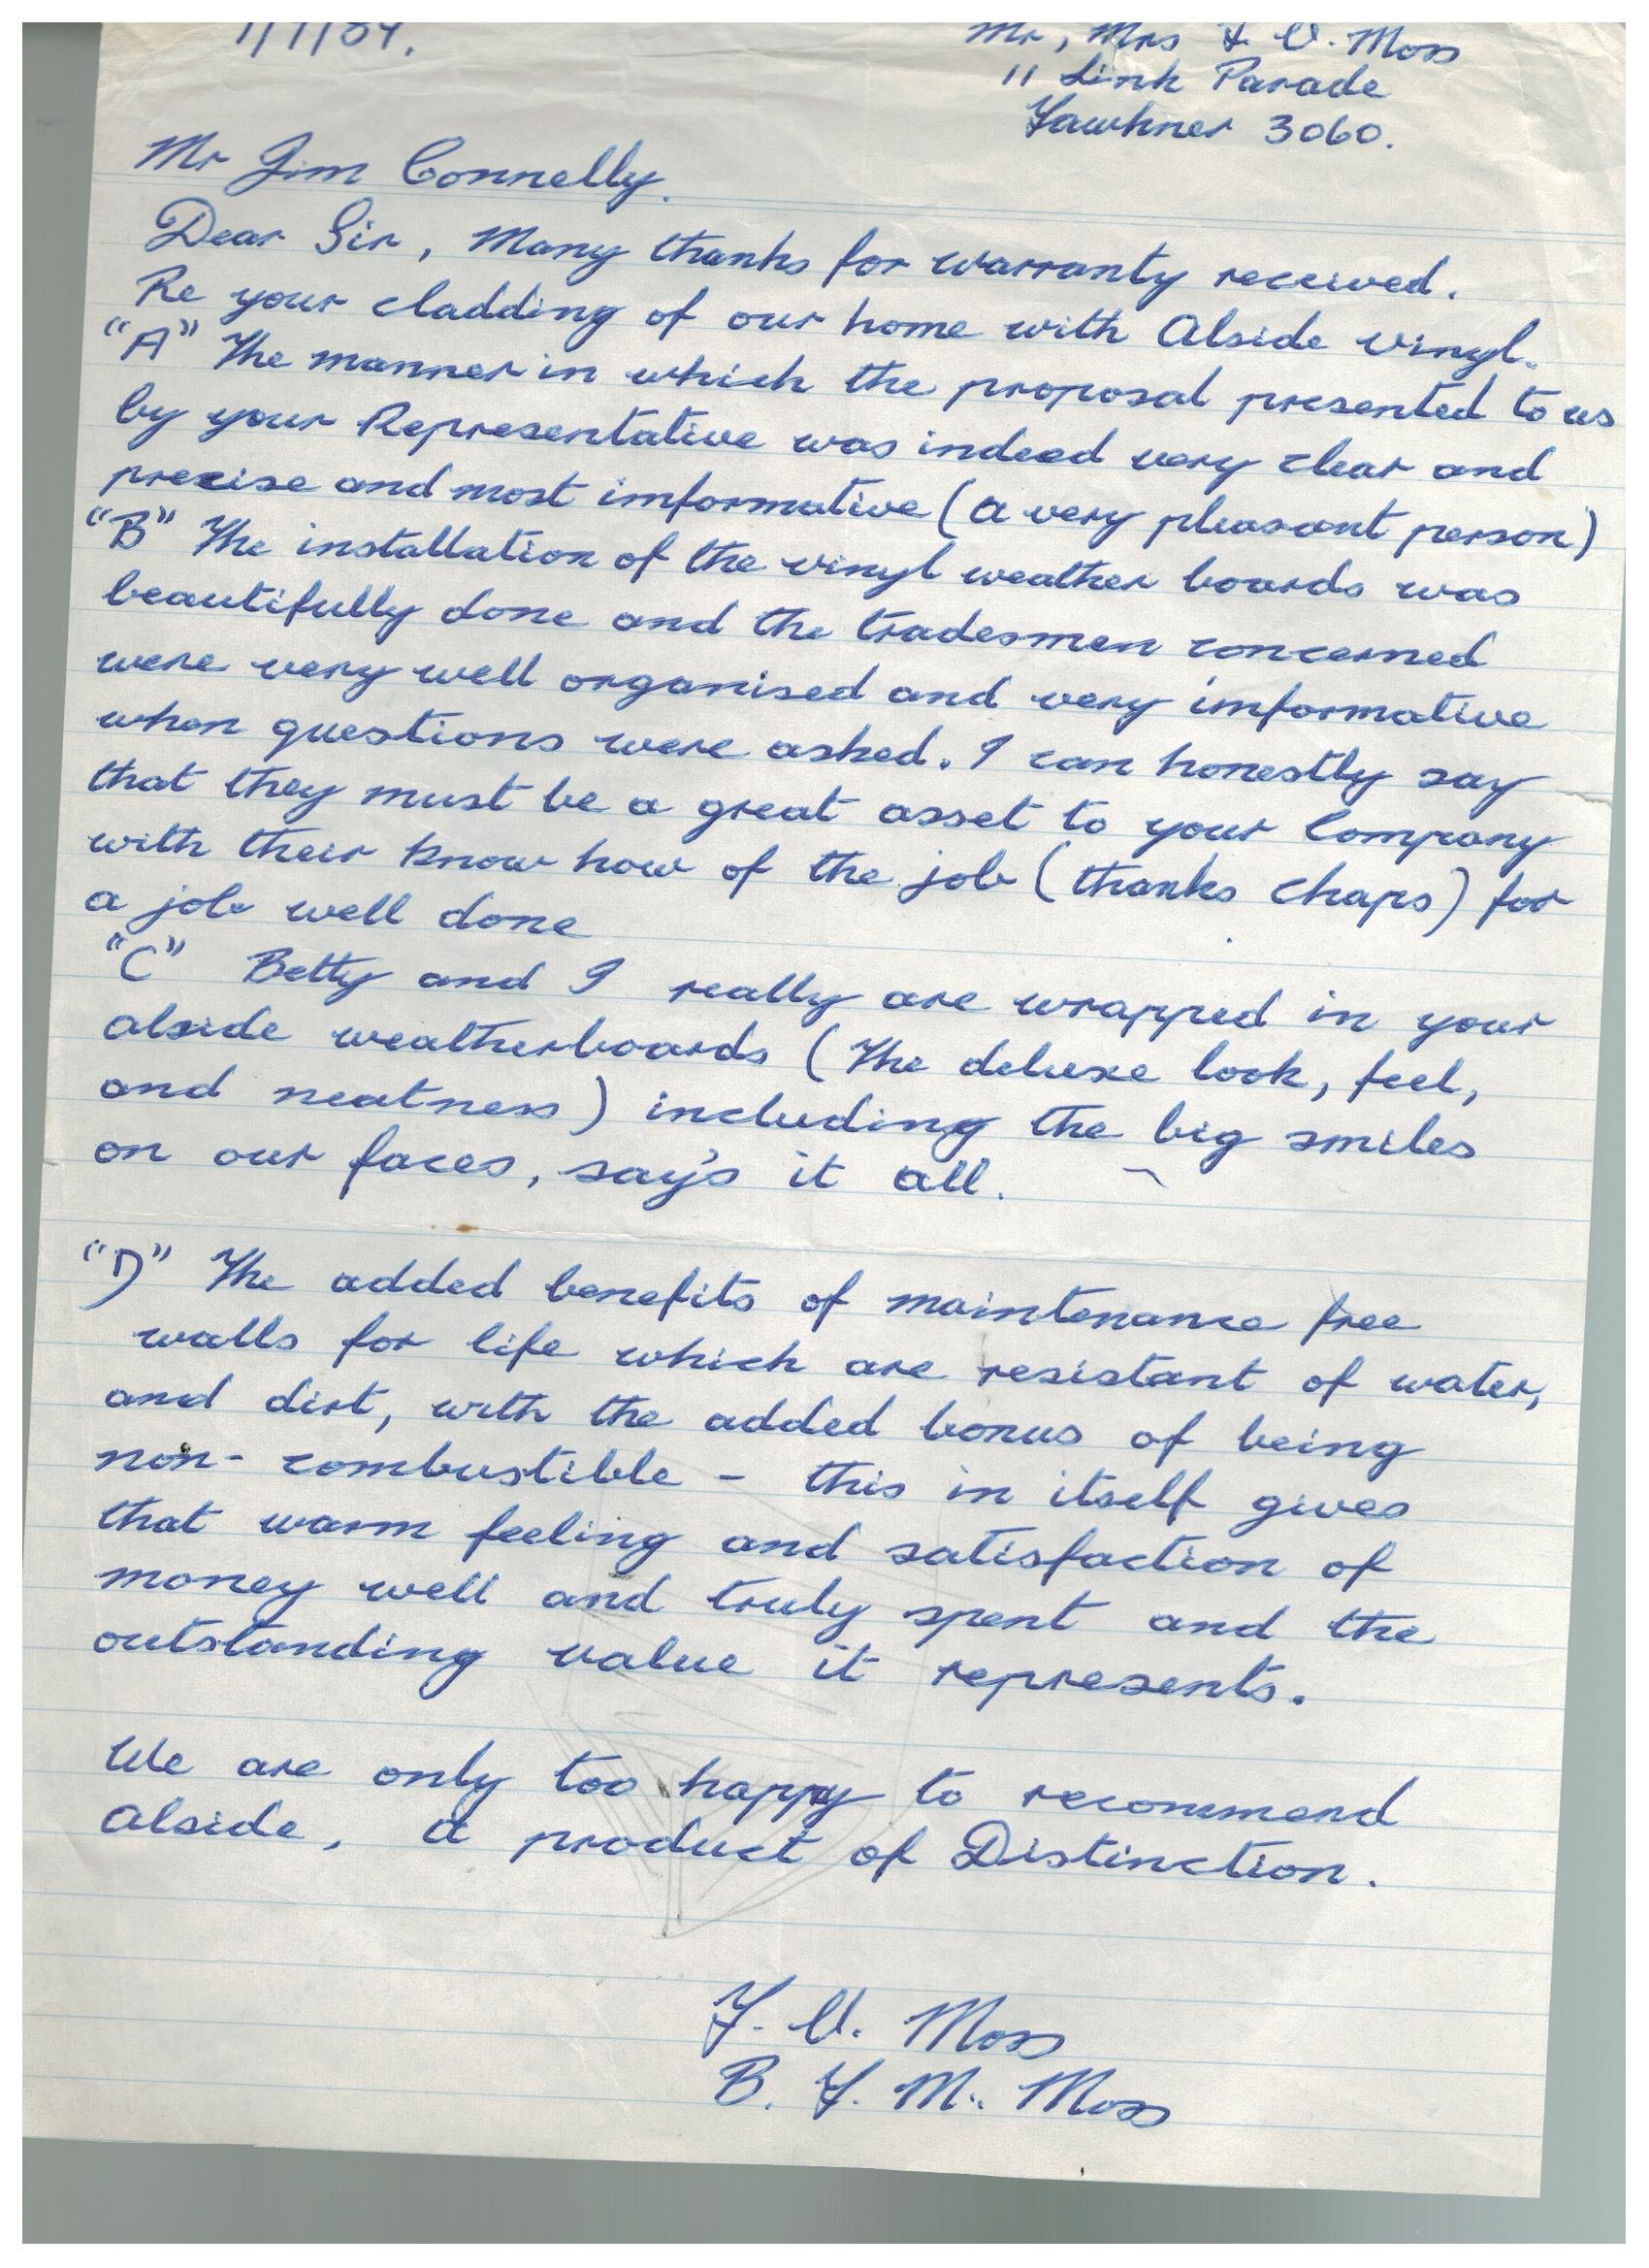 Mr, Mrs F. V. Moss
11 Link Parade
Fawkner 3060.
Mr Jim Connelly.
Dear Sir, Many thanks for warranty received.
Re your cladding of our home with Alside vinyl.
"A" The manner in which the proposal presented to us
by your Representative was indeed very clear and
precise and most imformative (a very pleasant person)
"B" The installation of the vinyl weather boards was
beautifully done and the tradesmen concerned
were very well organised and very imformative
when questions were asked. I can honestly say
that they must be a great asset to your Company
with their know how of the job (thanks chaps) for
a job well done
"C" Betty and I really are wrapped in your
alside weatherboards (The deluxe look, feel,
and neatness) including the big smiles
on our faces, say's it all.
"D" The added benefits of maintenance free
walls for life which are resistant of water,
and dirt, with the added bonus of being
non-combustible - this in itself gives
that warm feeling and satisfaction of
money well and truly spent and the
outstanding value it represents.
We are only too happy to recommend
Alside, a product of Distinction.
F. V. Moss
B. F. M. Moss